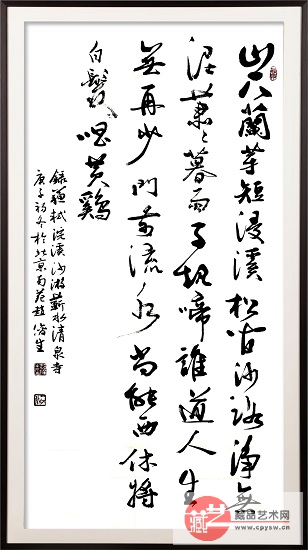 山下蘭芽短浸溪松间沙路淨無
泥萧々暮雨子規啼誰道人生
無再少門前流水尚能西休將
白髮唱黃鷄
録蘇軾浣溪沙游蘄水清泉寺
庚子初冬於北京南苑趙 生
藏
藏品艺术网
www.cpysw.cn